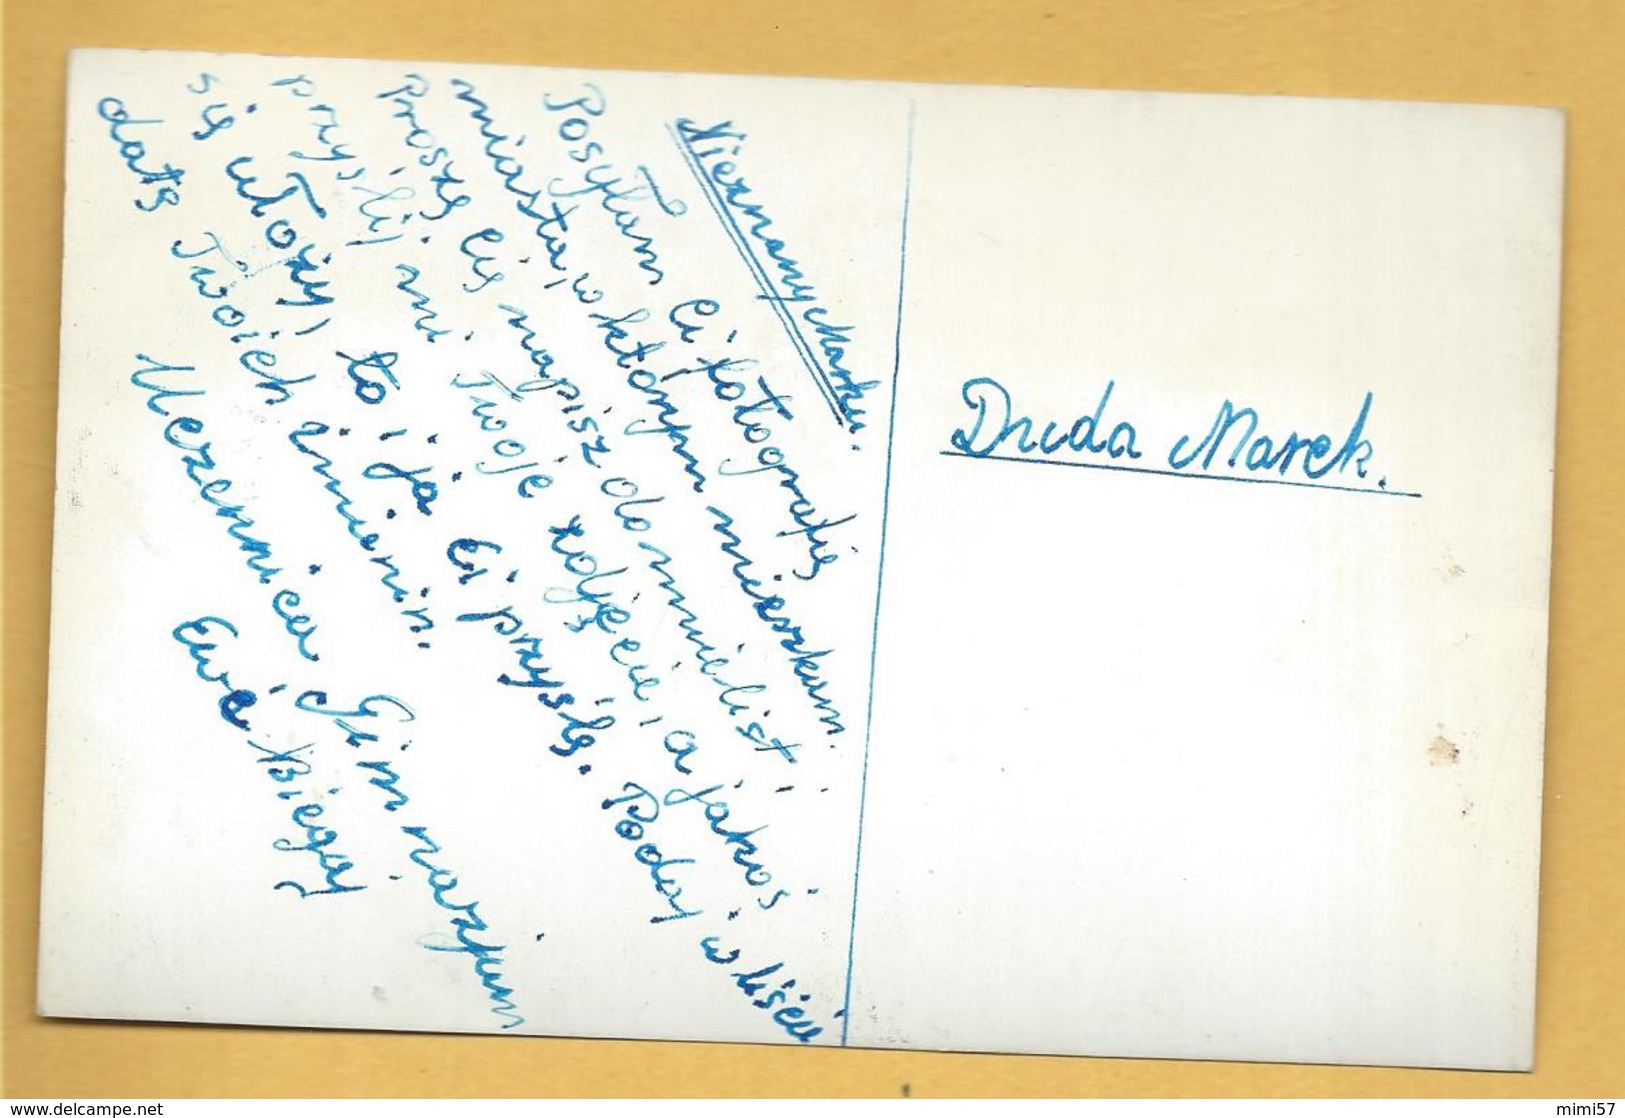 Nieznany Marku.
Posyłam Ci fotografię
miasta, w którym mieszkam.
Proszę Cię napisz do mnie list i
przyślij mi Twoje zdjęcie, a jakoś
się ułoży, to i ja Ci przyślę. Podaj w liście
datę Twoich imienin.
Uczennica Gimnazjum
Ewa Biegaj
Duda Marek.
www.delcampe.net
mimi57